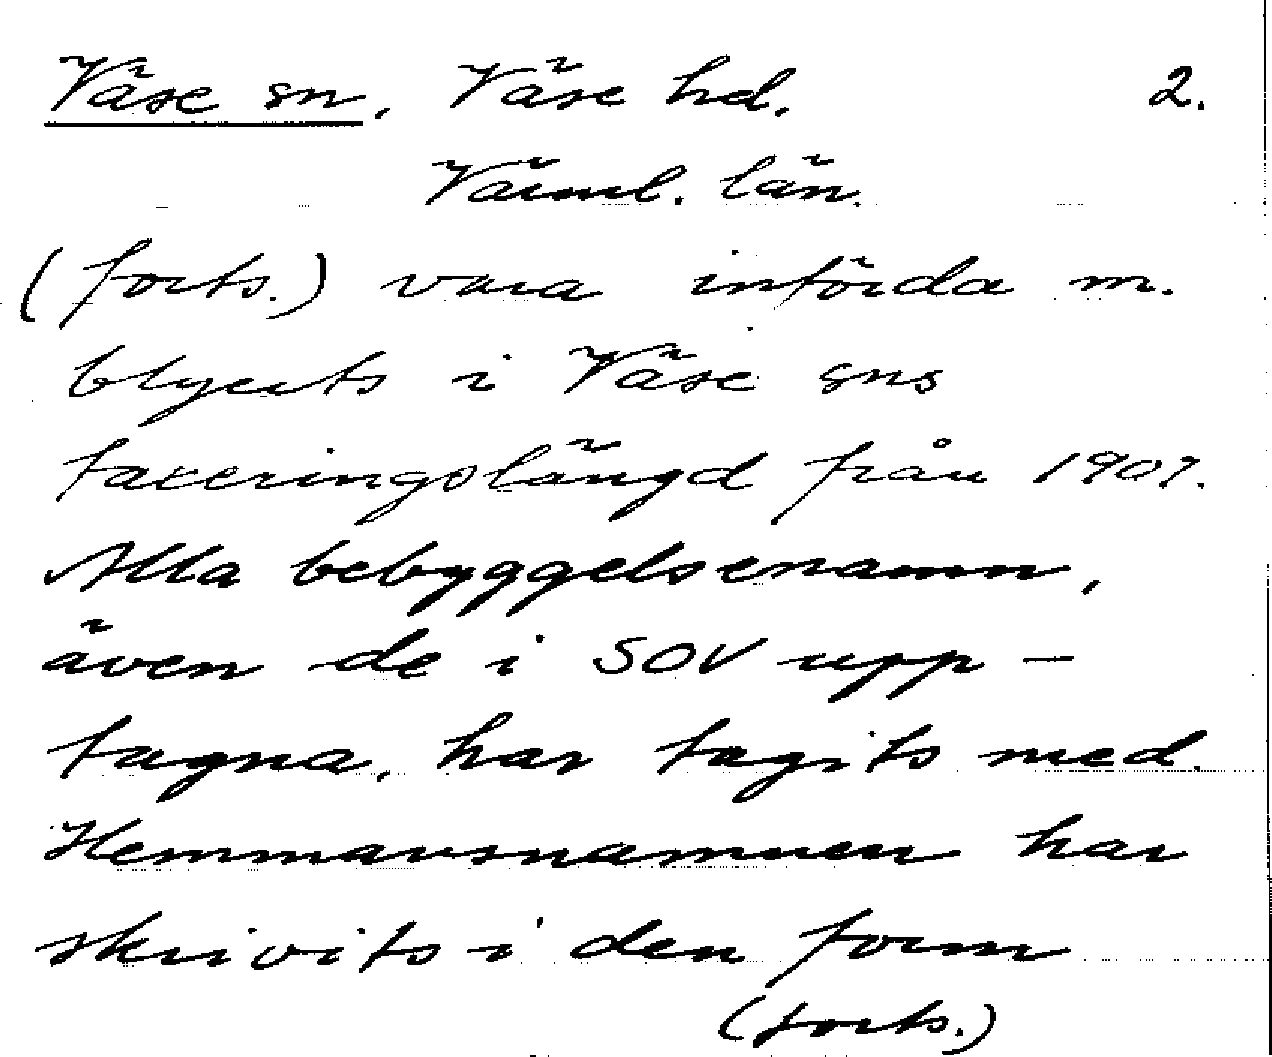 Väse sn, Väse hd. 2.
Värml. län.
(forts.) vara införda m.
blyerts i Väse sns
taxeringslängd från 1907.
Alla bebyggelsenamn,
även de i SOV upp-
tagna, har tagits med.
Hemmansnamnen har
skrivits i den form
(forts.)